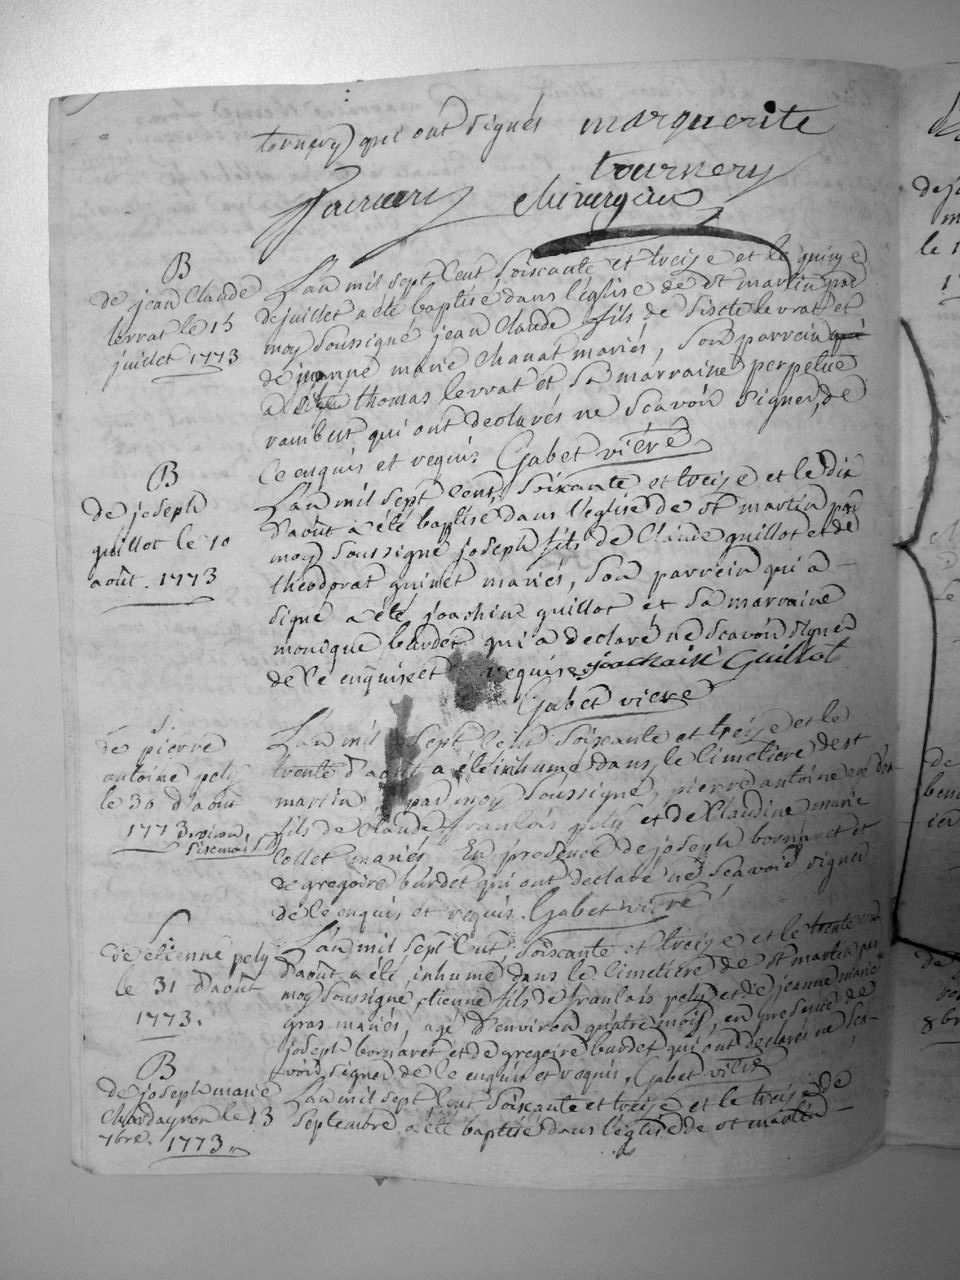 tournery qui ont signés marguerite
tournery
chirurgien
B
de jean Claude
levrat le 15
juillet 1773
L'an mil sept cent soixante et treize et le quinze
de juillet a été baptisé dans l'église de st martin par
moy soussigné jean Claude fils de sixte levrat et
de jeanne marie Chanat mariés, son parrein
a été thomas levrat et sa marraine perpetue
rambert qui ont declarés ne scavoir signer, de
ce enquis et requis Gabet vicre
B
de joseph
guillot le 10
août. 1773
L'an mil sept cent soixante et treize et le dix
d'août a été baptisé dans l'église de st martin par
moy soussigné joseph fils de Claude guillot et de
theodorat guinet mariés, son parrein qui a
signé a été joachin guillot et sa marraine
monique burdet qui a declaré ne scavoir signer
de ce enquise et requise joachain Guillot
Gabet vicre
S
de pierre
antoine pely
le 30 d'août
1773 d'environ
six mois
L'an mil sept cent soixante et treize et le
trente d'août a été inhumé dans le cimetiere de st
martin par moy soussigné, pierre antoine
fils de Claude francois pely et de Claudine marie
Collet mariés En presence de joseph bornaret et
de gregoire burdet qui ont declaré ne scavoir signer
de ce enquis et requis. Gabet vicre
S
de etienne pely
le 31 d'août
1773.
L'an mil sept cent soixante et treize et le trente un
d'août a été inhumé dans le cimetiere de st martin par
moy soussigné, etienne fils de francois pely et de jeanne marie
gras mariés, agé d'environ quatre mois, en presence de
joseph bornaret et de gregoire burdet qui ont declarés ne sca-
voir signer de ce enquis et requis, Gabet vicre
B
de joseph marie
Chardayron le 13
7bre. 1773
L'an mil sept cent soixante et treize et le treize de
Septembre a été baptisé dans l'église de st martin